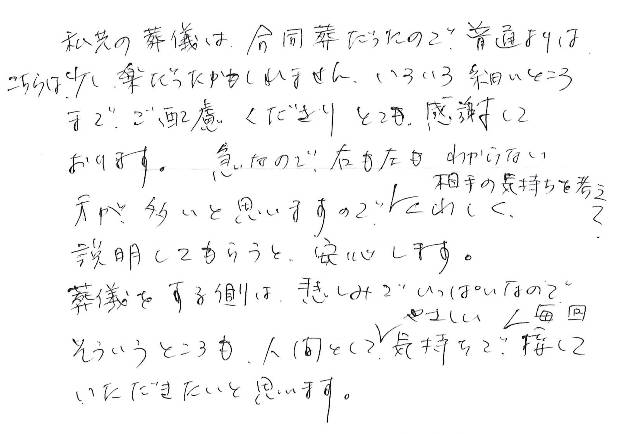 私共の葬儀は、合同葬だったので、普通よりは、
こちらは、少し楽だったかもしれません、いろいろ細いところ
まで、ご配慮くださりとても、感謝して
おります。 急いなので、右も左もわからない
相手の気持ちを考えて
方が、多いと思いますので、くわしく、
説明してもらうと、安心します。
葬儀をする側は、悲しみでいっぱいなので、
やさしい 毎回
そういうところも、人間として、気持ちで、接して
いただきたいと思います。